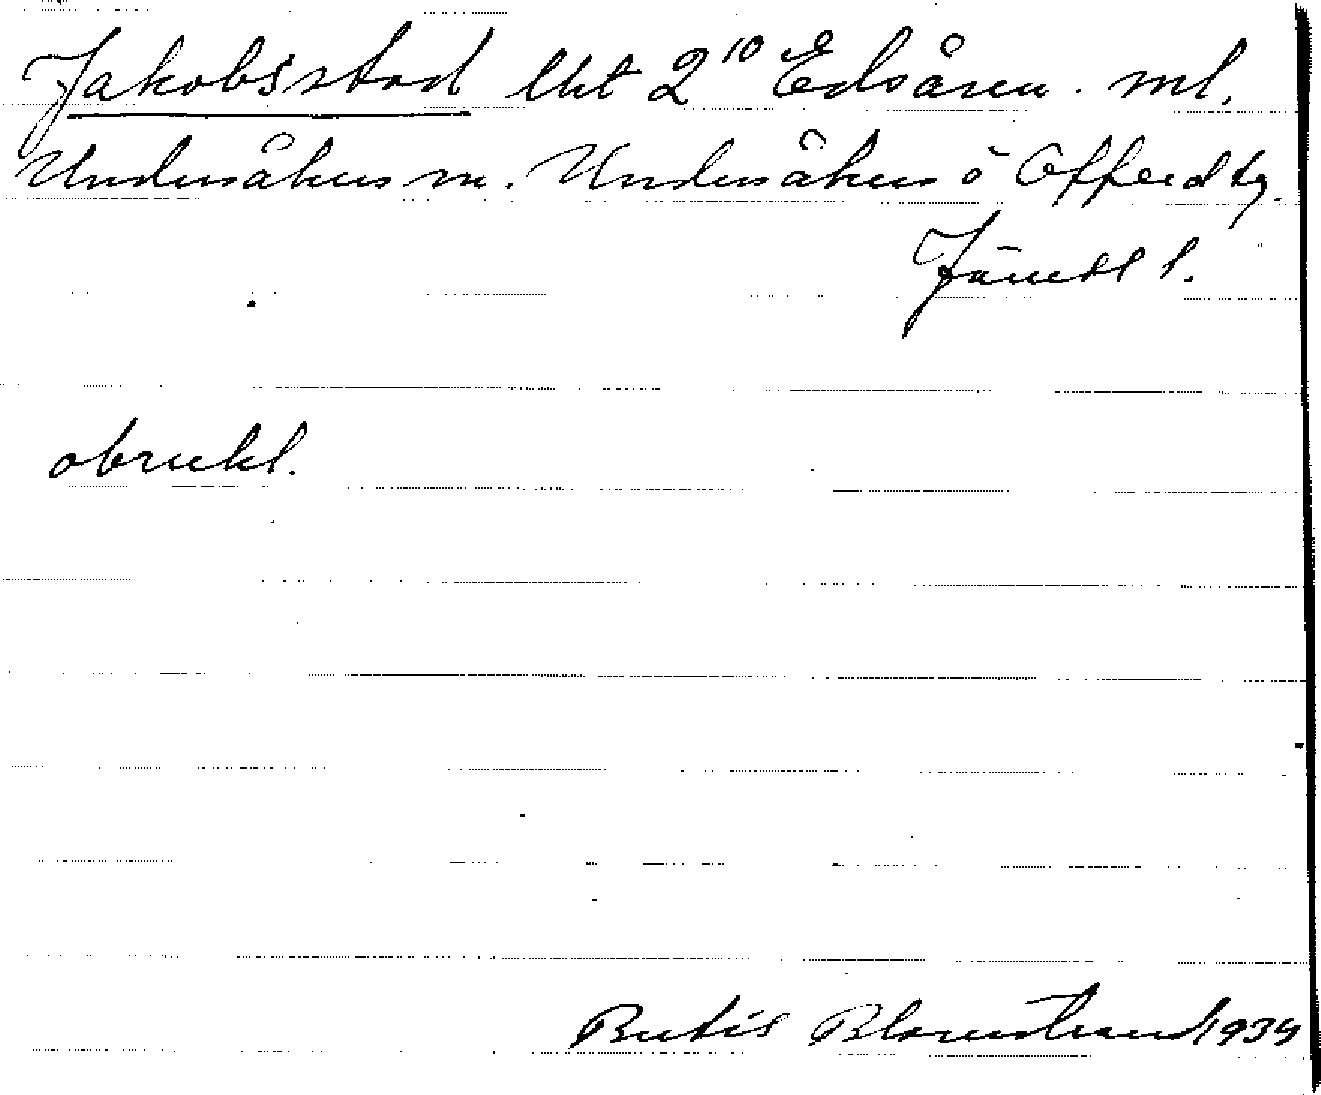 Jakobsstad lht 2¹⁰ Edsåsen. ml.
Undersåkers m. Undersåkers o Offerd tg.
Jämtl l.
obrukl.
Bertil Blomstrand 1934